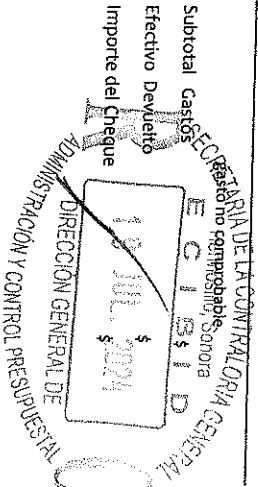 Gasto no comprobable
Subtotal Gastos $
Efectivo Devuelto $
Importe del Cheque $
SECRETARIA DE LA CONTRALORIA GENERAL
Hermosillo, Sonora
RECIBIDO
JUL. 2024
DIRECCIÓN GENERAL DE
ADMINISTRACIÓN Y CONTROL PRESUPUESTAL